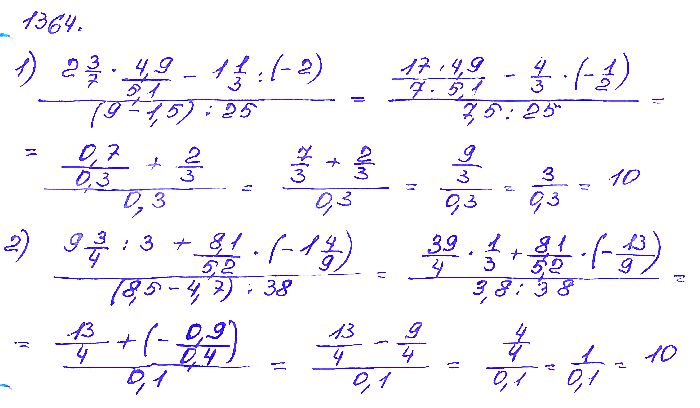 1364.
1) (2 3/7 · 4,9/5,1 − 1 1/3 : (−2)) / ((9 − 1,5) : 25) = ((17 · 4,9)/(7 · 5,1) − 4/3 · (−1/2)) / (7,5 : 25) =
= (0,7/0,3 + 2/3) / 0,3 = (7/3 + 2/3) / 0,3 = (9/3) / 0,3 = 3/0,3 = 10
2) (9 3/4 : 3 + 8,1/5,2 · (−1 4/9)) / ((8,5 − 4,7) : 38) = (39/4 · 1/3 + 8,1/5,2 · (−13/9)) / (3,8 : 38) =
= (13/4 + (−0,9/0,4)) / 0,1 = (13/4 − 9/4) / 0,1 = (4/4) / 0,1 = 1/0,1 = 10